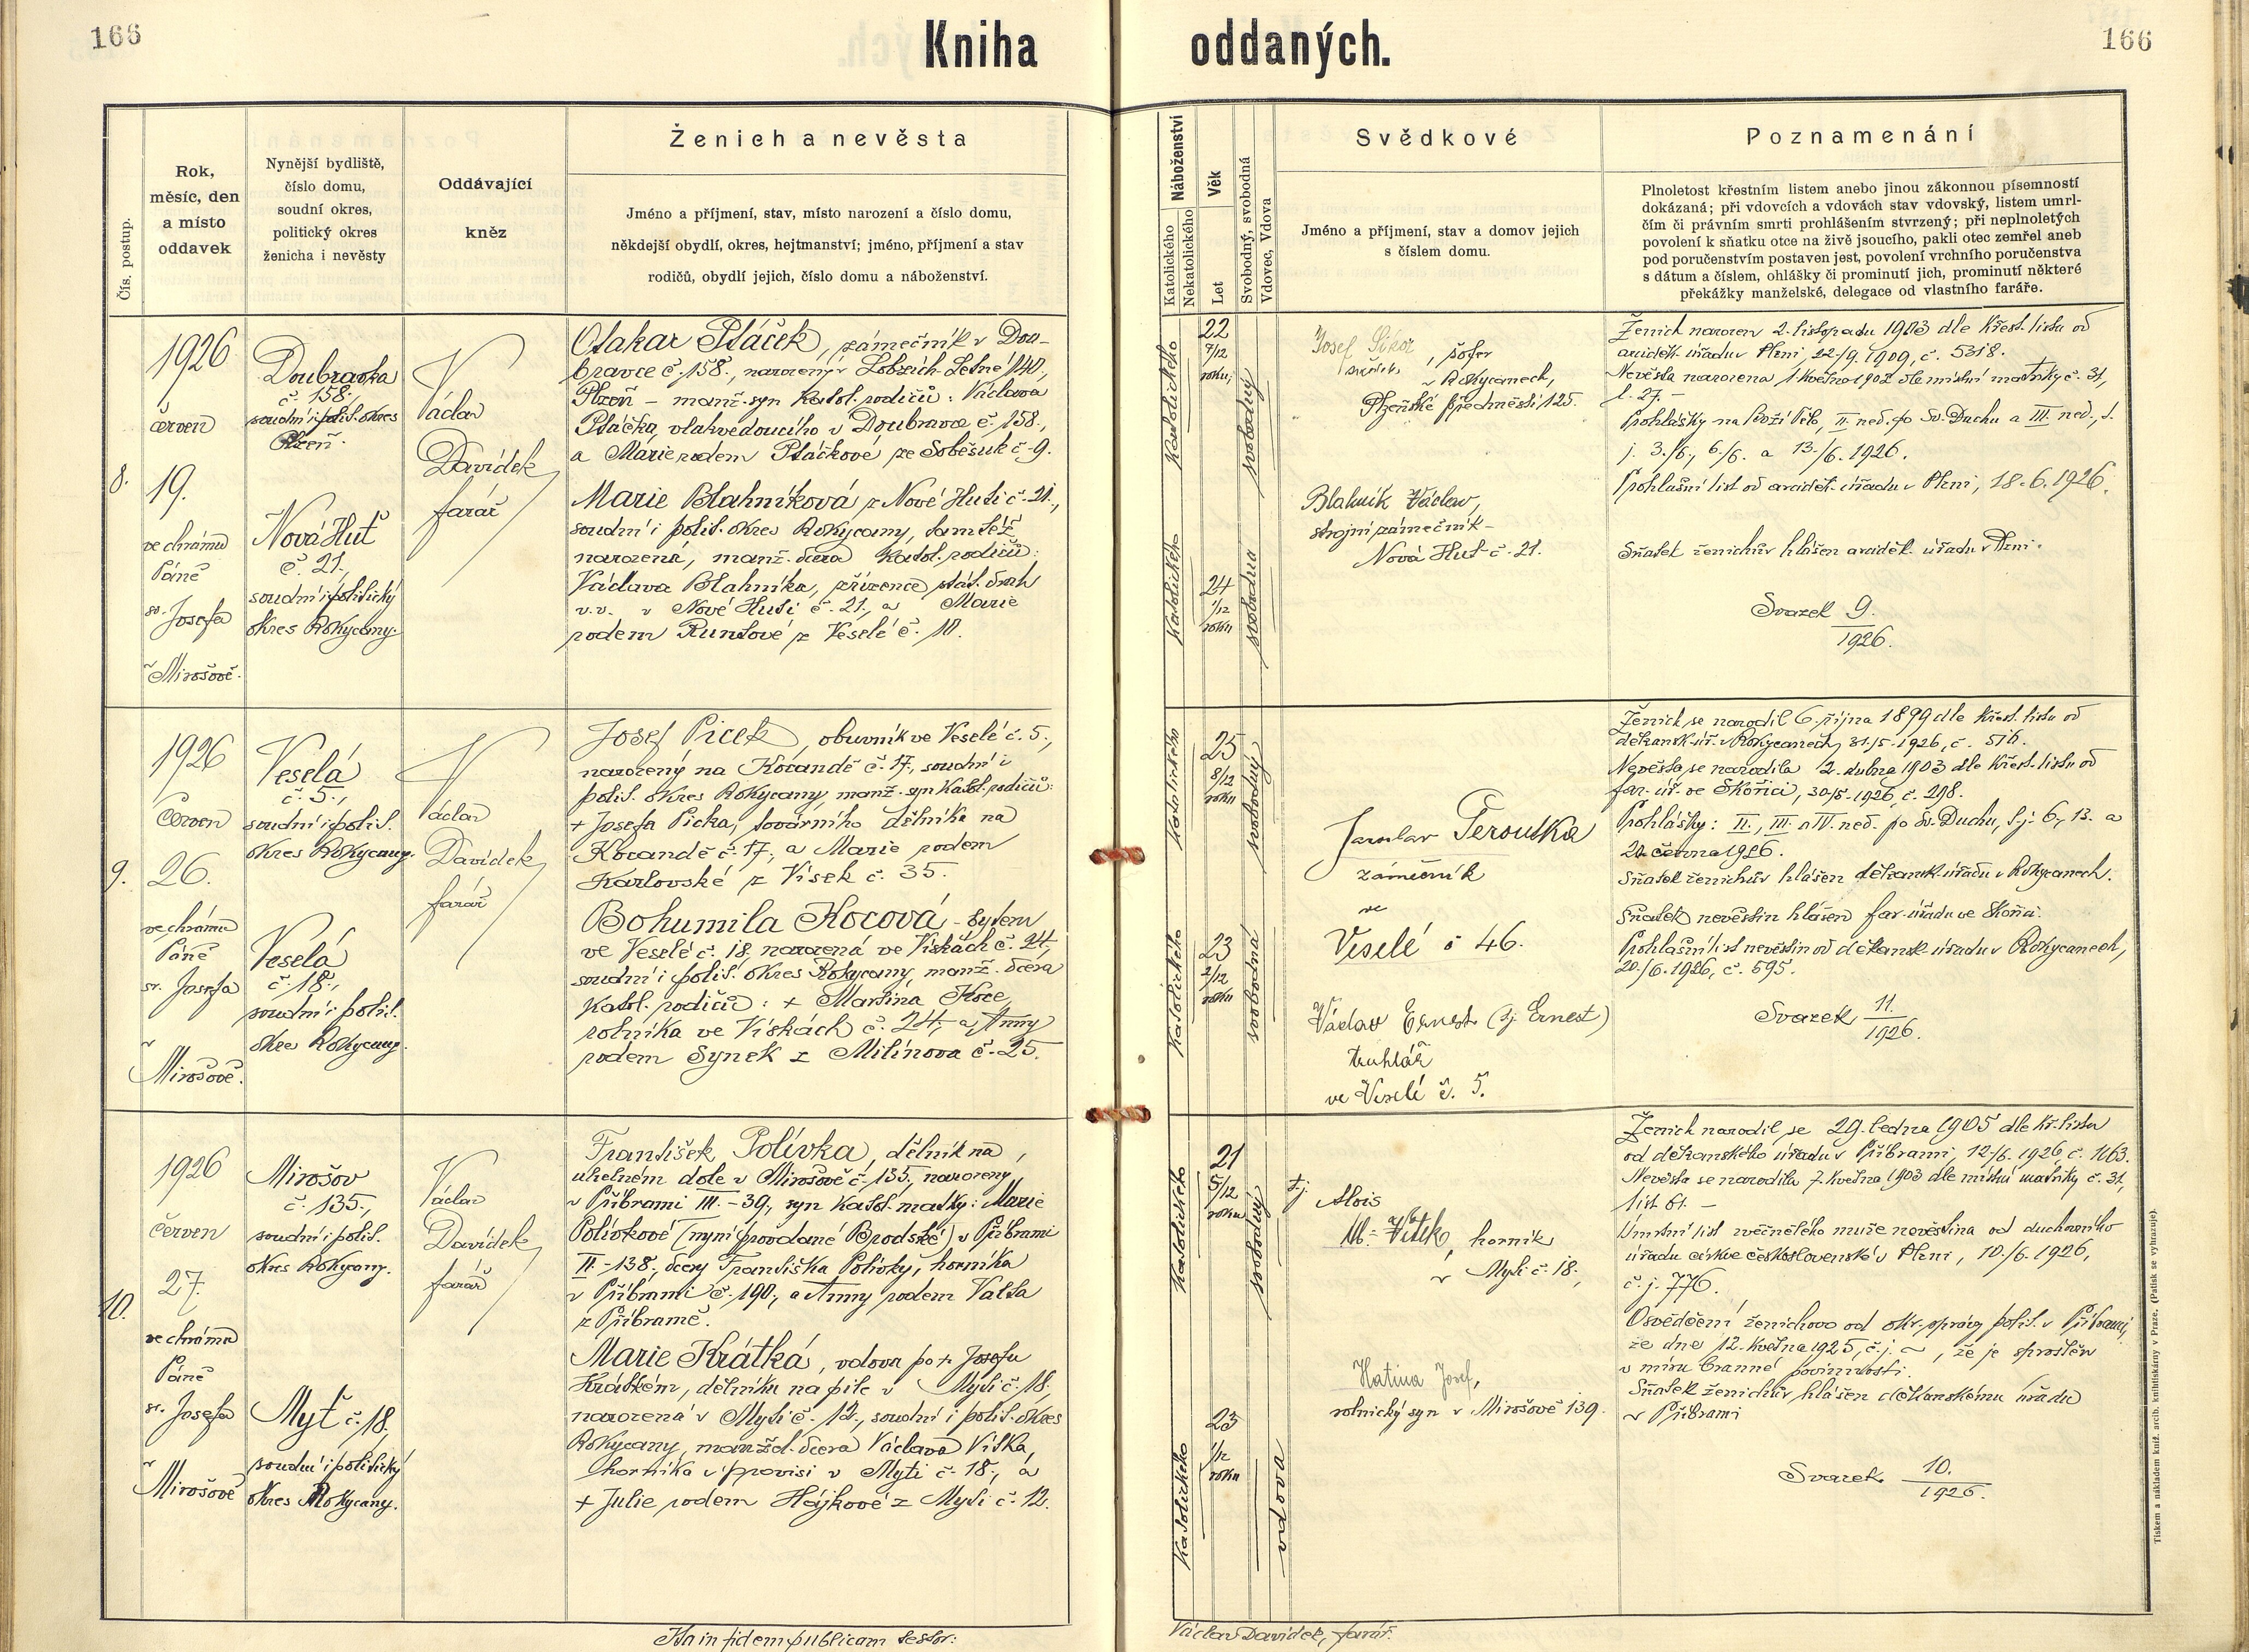 166
Kniha oddaných.
166
Čís. postup.
Rok,
měsíc, den
a místo
oddavek
Nynější bydliště,
číslo domu,
soudní okres,
politický okres
ženicha i nevěsty
Oddávající
kněz
Ženich a nevěsta
Jméno a příjmení, stav, místo narození a číslo domu,
někdejší obydlí, okres, hejtmanství; jméno, příjmení a stav
rodičů, obydlí jejich, číslo domu a náboženství.
Náboženství
Katolického
Nekatolického
Věk
Let
Svobodný, svobodná
Vdovec, Vdova
Svědkové
Jméno a příjmení, stav a domov jejich
s číslem domu.
Poznamenání
Plnoletost křestním listem anebo jinou zákonnou písemností
dokázaná; při vdovcích a vdovách stav vdovský, listem umrl-
čím či právním smrti prohlášením stvrzený; při neplnoletých
povolení k sňatku otce na živě jsoucího, pakli otec zemřel aneb
pod poručenstvím postaven jest, povolení vrchního poručenstva
s dátum a číslem, ohlášky či prominutí jich, prominutí některé
překážky manželské, delegace od vlastního faráře.
8.
1926
červen
19.
ve chrámu
Páně
sv. Josefa
v Mirošově.
Doubravka
č. 158.,
soudní i polit. okres
Plzeň.
Nová Huť
č. 21.,
soudní i politický
okres Rokycany.
Václav
Davídek,
farář
Otakar Ptáček, zámečník v Dou-
bravce č. 158., narozený v Lobzích-Letné 140,
Plzeň – manž. syn katol. rodičů: Václava
Ptáčka, vlakvedoucího v Doubravce č. 158.,
a Marie rodem Ptáčkové ze Soběšuk č. 9.
Marie Blahníková z Nové Huti č. 21.,
soudní i polit. okres Rokycany, tamtéž
narozená, manž. dcera katol. rodičů:
Václava Blahníka, zřízence stát. drah
v. v. v Nové Huti č. 21., a Marie
rodem Runtové z Veselé č. 10.
Katolického
22
7/12
roku
svobodný
Katolického
24
1/12
roku
svobodna
Josef, šofer
v Rokycanech,
Plzeňské předměstí 125.
Blahník Václav,
strojní zámečník –
Nová Huť č. 21.
Ženich narozen 2. listopadu 1903 dle křest. listu od
arciděk. úřadu v Plzni, 22/9. 1909, č. 5318.
Nevěsta narozena, 1. května 1902 dle místní matriky č. 31,
l. 27. –
Prohlášky na Boží Tělo, II. neď. po Sv. Duchu a III. neď., t.
j. 3./6., 6./6. a 13./6. 1926.
Prohlašní list od arciděk. úřadu v Plzni, 18. 6. 1926.
Sňatek ženichův hlášen arciděk. úřadu v Plzni.
Svazek 9.
1926.
9.
1926
Červen
26.
ve chrámu
Páně
sv. Josefa
v
Mirošově.
Veselá
č. 5.,
soudní i polit.
okres Rokycany.
Veselá
č. 18.,
soudní i polit.
okres Rokycany.
Václav
Davídek,
farář
Josef Picek, obuvník ve Veselé č. 5.,
narozený na Kocandě č. 17., soudní i
polit. okres Rokycany, manž. syn katol. rodičů:
+ Josefa Picka, továrního dělníka na
Kocandě č. 17., a Marie rodem
Karlovské z Vísek č. 35.
Bohumila Kocová – bytem
ve Veselé č. 18. narozená ve Vískách č. 24.,
soudní i polit. okres Rokycany, manž. dcera
katol. rodičů: + Martina Koce,
rolníka ve Vískách č. 24., a Anny
rodem Synek z Milínova č. 25.
Katolického
25
8/12
roku
svobodný
Katolického
23
2/12
roku
svobodná
Jaroslav Peroutka
zámečník
ve
Veselé č 46.
Václav Ernest (tj. Ernest)
truhlář
ve Veselé č. 5.
Ženich se narodil 6. října 1899 dle křest. listu od
děkansk. úř. v Rokycanech, 31./5. 1926, č. 516.
Nevěsta se narodila 2. dubna 1903 dle křest. listu od
far. úř. ve Skořici, 30./5. 1926, č. 298.
Prohlášky: II., III. a IV. neď. po Sv. Duchu, t. j. 6., 13. a
20. června 1926.
Sňatek ženichův hlášen děkansk. úřadu v Rokycanech.
Sňatek nevěstin hlášen far. úřadu ve Skořici.
Prohlašní list nevěstin od děkansk. úřadu v Rokycanech,
20./6. 1926, č. 595.
Svazek 11.
1926.
10.
1926
červen
27.
ve chrámu
Páně
sv. Josefa
v
Mirošově
Mirošov
č. 135.,
soudní i polit.
okres Rokycany.
Myť č. 18,
soudní i politický
okres Rokycany.
Václav
Davídek,
farář
František Polívka, dělník na
uhelném dole v Mirošově č. 135., narozený
v Příbrami III. – 39., syn katol. matky: Marie
Polívkové (nyní provdané Brodské) v Příbrami
II. – 138., dcery Františka Polívky, horníka
v Příbrami č. 190., a Anny rodem Valta
z Příbramě.
Marie Krátká, vdova po + Josefu
Krátkém, dělníku na pile v Myti č. 18,
narozená v Myti č. 12., soudní i polit. okres
Rokycany, manžel. dcera Václava Vítka,
horníka v provisi v Myti č. 18., a
+ Julie rodem Hájkové z Myti č. 12.
Katolického
21
5/12
roku
svobodný
Katolického
23
1/12
roku
vdova
t.j. Alois
Vítek, horník
v Myti č. 18.,
Hatina Josef,
rolnický syn v Mirošově 139.
Ženich narodil se 29. ledna 1905 dle kř. listu
od děkanského úřadu v Příbrami, 12./6. 1926, č. 1063.
Nevěsta se narodila 7. května 1903 dle místní matriky č. 31,
list 61. –
Úmrtní list zvěčnělého muže nevěstina od duchovního
úřadu církve československé v Plzni, 10./6. 1926,
č. j. 776.
Osvědčení ženichovo od okr. správy polit. v Příbrami,
ze dne 12. května 1925, č. j. ~, že je sproštěn
v míru branné povinnosti.
Sňatek ženichův hlášen děkanskému úřadu
v Příbrami
Svazek 10.
1926.
Ita in fidem publicam testor:
Václav Davídek, farář.
Tiskem a nákladem kníž. arcib. knihtiskárny v Praze. (Patisk se vyhrazuje).